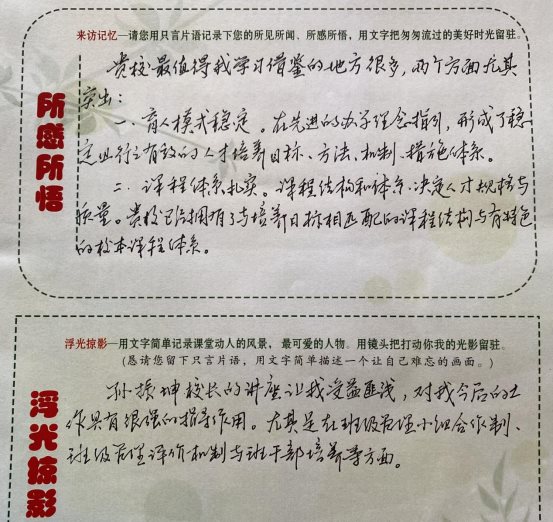 来访记忆—请您用只言片语记录下您的所见所闻、所感所悟,用文字把匆匆流过的美好时光留驻。
所感所悟
贵校最值得我学习借鉴的地方很多,两个方面尤其
突出:
一、育人模式稳定。在先进的办学理念指引,形成了稳
定且行之有效的人才培养目标、方法、机制、措施体系。
二、课程体系扎实。课程结构和体系决定人才规格与
质量。贵校已经拥有了与培养目标相匹配的课程结构与有特色
的校本课程体系。
浮光掠影—用文字简单记录课堂动人的风景,最可爱的人物。用镜头把打动你我的光影留驻。
(恳请您留下只言片语,用文字简单描述一个让自己难忘的画面。)
浮光掠影
孙振坤校长的讲座让我受益匪浅,对我今后的工
作具有很强的指导作用。尤其是在班级管理小组合作制、
班级管理评价机制与班干部培养等方面。